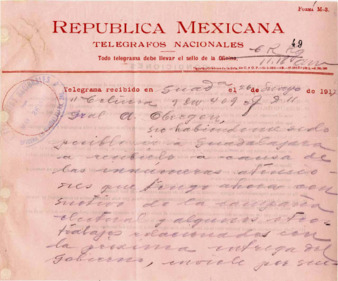 FORMA M-2.
REPUBLICA MEXICANA
TELEGRAFOS NACIONALES
Todo telegrama debe llevar el sello de la Oficina.
49
Telegrama recibido en Guad de Mayo de 191
Gral A. Obregon
No habiendome sido
posible ir a Guadalajara
a recibirlo a causa de
las atencio
nes que tengo ahora con
motivo de la campaña
electoral y algunos otros
trabajos relacionados con
la proxima entrega del
Gobierno,